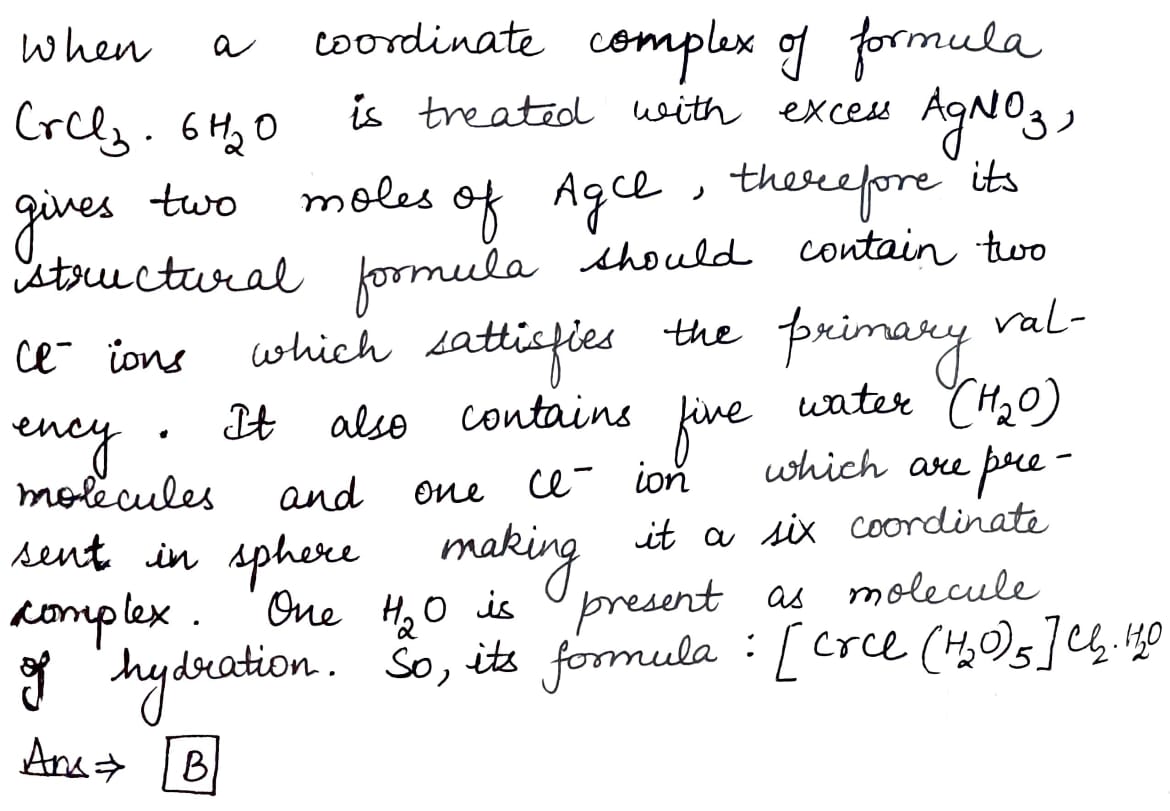 When a coordinate complex of formula
CrCl₃ . 6H₂O is treated with excess AgNO₃,
gives two moles of AgCl, therefore its
structural formula should contain two
Cl⁻ ions which sattisfies the primary val-
ency. It also contains five water (H₂O)
molecules and one Cl⁻ ion which are pre-
sent in sphere making it a six coordinate
complex. One H₂O is present as molecule
of hydration. So, its formula : [CrCl(H₂O)₅]Cl₂.H₂O
Ans ⇒ B